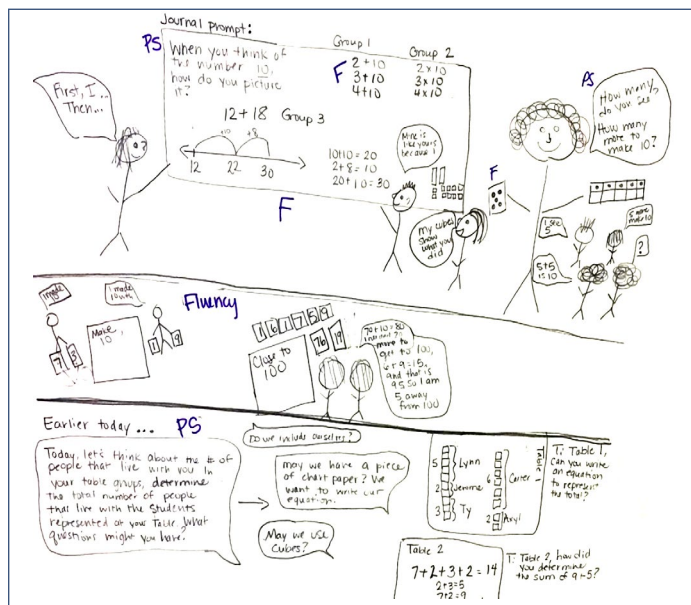 Journal prompt:
PS
When you think of
the number 10,
how do you picture
it?
Group 1
F
2+10
3+10
4+10
Group 2
2×10
3×10
4×10
First, I...
Then...
12+18 Group 3
+10
+8
12
22
30
10+10=20
2+8=10
20+10=30
Mine is
like yours
because
F
My cubes
show
what you
did
PS
How many
do you see
How many
more to
make 10?
F
I see
5
5 more
make 10
?
5+5
is 10
Fluency
I made
I made
10 with
Make
10
7
3
1
9
1 6 1 7 5 9
76
19
Close to
100
70+10=80
more to
get to 100,
6+9=15,
and that is
95 so I am
5 away
from 100
Earlier today... PS
Today, let's think about the # of
people that live with you. In
your table groups, determine
the total number of people
that live with the students
represented at your table. What
questions might you have?
Do we include ourselves?
May we have a piece
of chart paper? We
want to write our
equation.
May we use
cubes?
5
Lynn
2
Jemma
3
Ty
6
Carter
2
Table 1
T: Table 1,
Can you write
an equation
to represent
the total?
Table 2
7+2+3+2=14
2+3=5
7+2=9
T: Table 2, how did
you determine
the sum of 9+5?